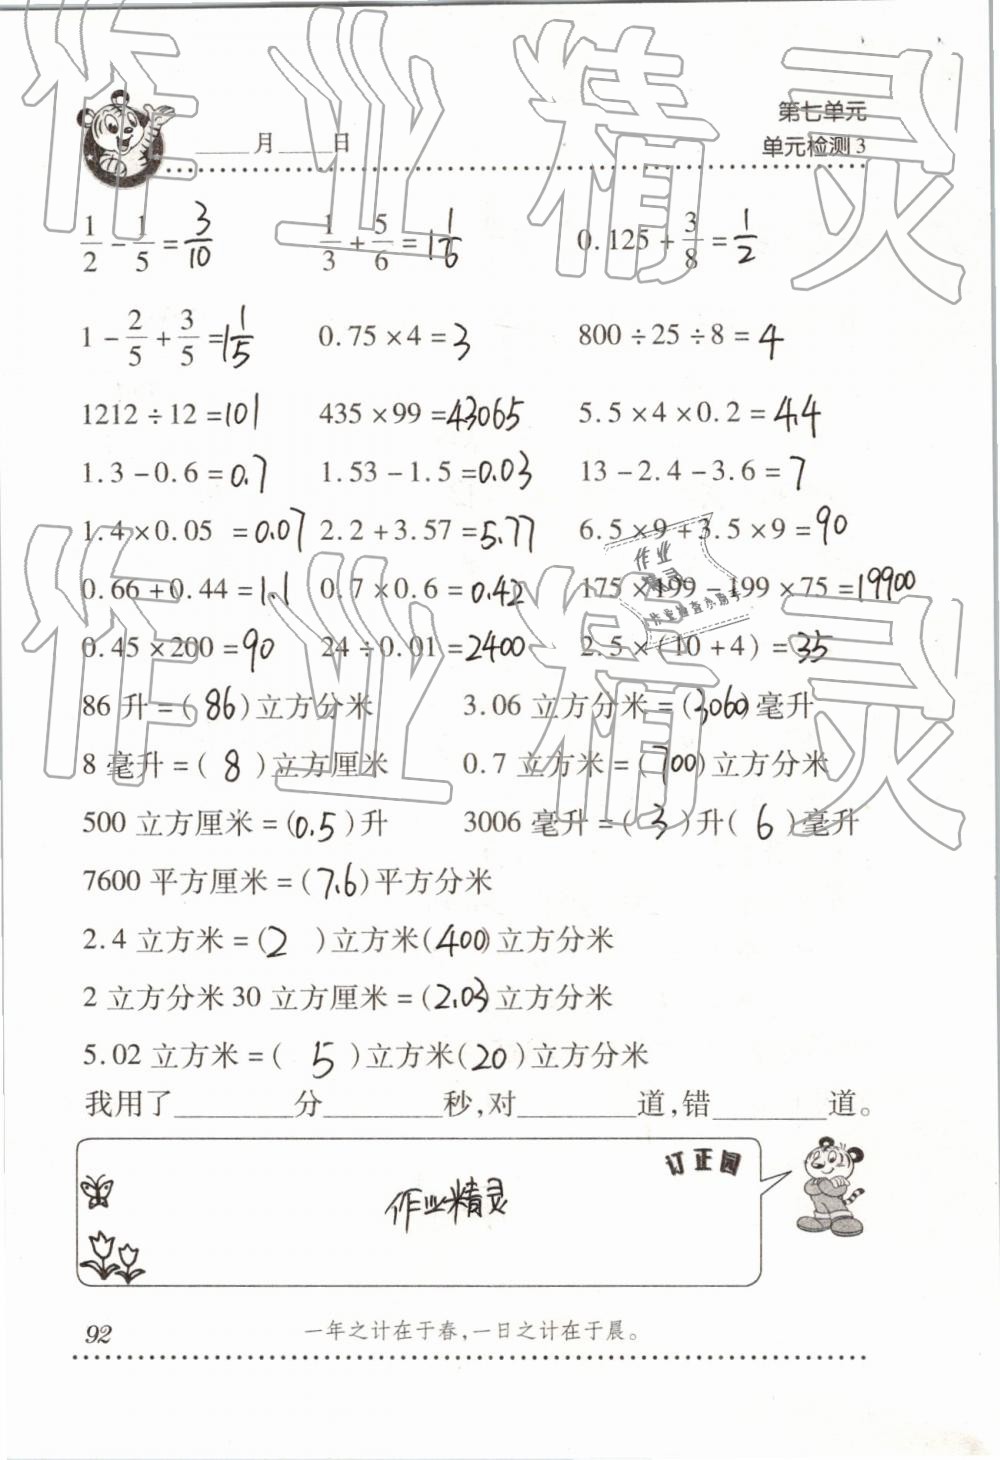 作业精灵
第七单元
____月____日 单元检测3
1/2 - 1/5 = 3/10 1/3 + 5/6 = 1 1/6 0.125 + 3/8 = 1/2
1 - 2/5 + 3/5 = 1 1/5 0.75 × 4 = 3 800 ÷ 25 ÷ 8 = 4
1212 ÷ 12 = 101 435 × 99 = 43065 5.5 × 4 × 0.2 = 4.4
1.3 - 0.6 = 0.7 1.53 - 1.5 = 0.03 13 - 2.4 - 3.6 = 7
1.4 × 0.05 = 0.07 2.2 + 3.57 = 5.77 6.5 × 9 + 3.5 × 9 = 90
0.66 + 0.44 = 1.1 0.7 × 0.6 = 0.42 175 × 199 - 199 × 75 = 19900
0.45 × 200 = 90 24 ÷ 0.01 = 2400 2.5 × (10 + 4) = 35
作业精灵
86 升 = ( 86 ) 立方分米 3.06 立方分米 = (3060) 毫升
8 毫升 = ( 8 ) 立方厘米 0.7 立方米 = (700) 立方分米
500 立方厘米 = (0.5) 升 3006 毫升 = ( 3 ) 升 ( 6 ) 毫升
7600 平方厘米 = (7.6) 平方分米
2.4 立方米 = (2 ) 立方米 (400) 立方分米
2 立方分米 30 立方厘米 = (2.03) 立方分米
5.02 立方米 = ( 5 ) 立方米 (20 ) 立方分米
我用了________分________秒,对________道,错________道。
订正园
作业精灵
92 一年之计在于春,一日之计在于晨。